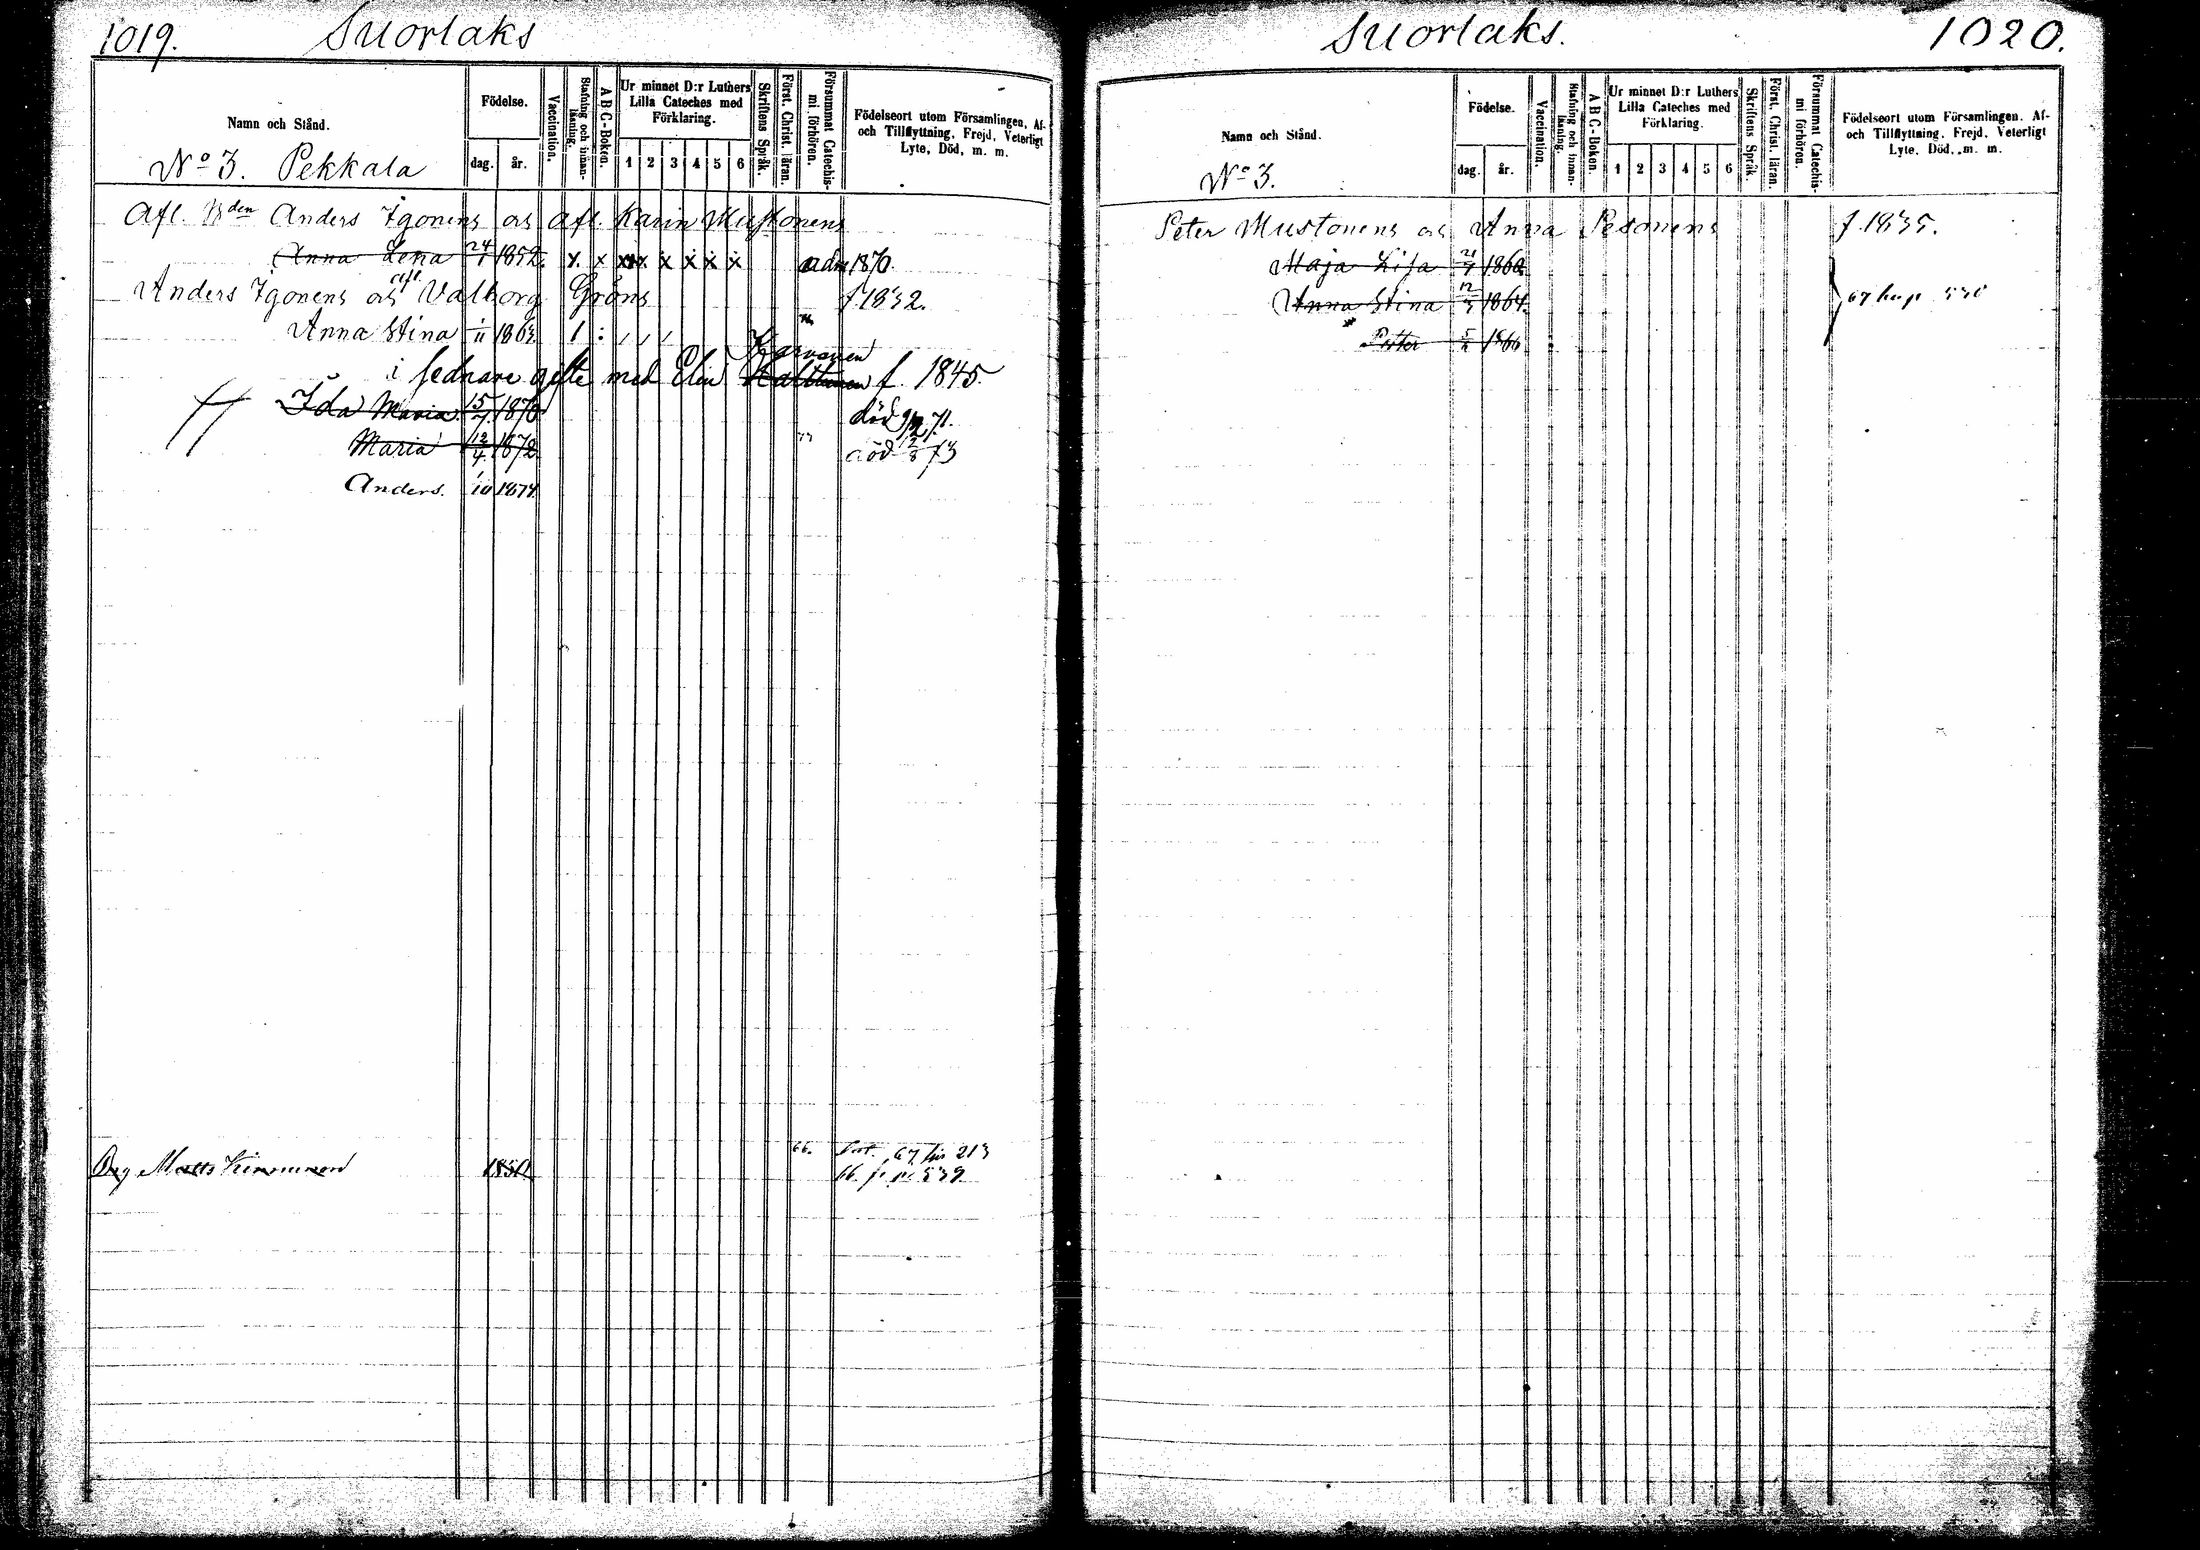 1019. Suorlaks
Namn och Stånd.
Födelse.
dag. år.
Vaccination.
Stafning och innan-läsning.
A B C-Boken.
Ur minnet D:r Luthers Lilla Cateches med Förklaring.
1 2 3 4 5 6
Skriftens Språk.
Först. Christ. läran.
Försummat Catechis-mi förhören.
Födelseort utom Församlingen, Af- och Tillflyttning, Frejd, Veterligt Lyte, Död, m. m.
No 3. Pekkala
Afl. Anders Igonens och afl. Karin Mustonens
Anna Lena 24/1 1852. x. x x x x x x adm 1870.
Anders Igonens och afl. Valborg Gröns f. 1832.
Anna Stina 1/11 1863
Karvonen
i sednare gifte med Elin f. 1845.
Ida Maria 15/7 1870 död 9/12 71.
Maria 12/4 1872 död 12/8 73
Anders. 1/10 1874.
66. 67 213
Drg Matts Kinnunen 1850 66. 539
Suorlaks. 1020.
Namn och Stånd.
Födelse.
dag. år.
Vaccination.
Stafning och innan-läsning.
A B C-Boken.
Ur minnet D:r Luthers Lilla Cateches med Förklaring.
1 2 3 4 5 6
Skriftens Språk.
Först. Christ. läran.
Försummat Catechis-mi förhören.
Födelseort utom Församlingen, Af- och Tillflyttning, Frejd, Veterligt Lyte, Död, m. m.
No 3.
Peter Mustonens och Anna Pesonens f. 1835.
Maja Lisa 21/9 1860
Anna Stina 12/3 1864. 67
Petter 1866